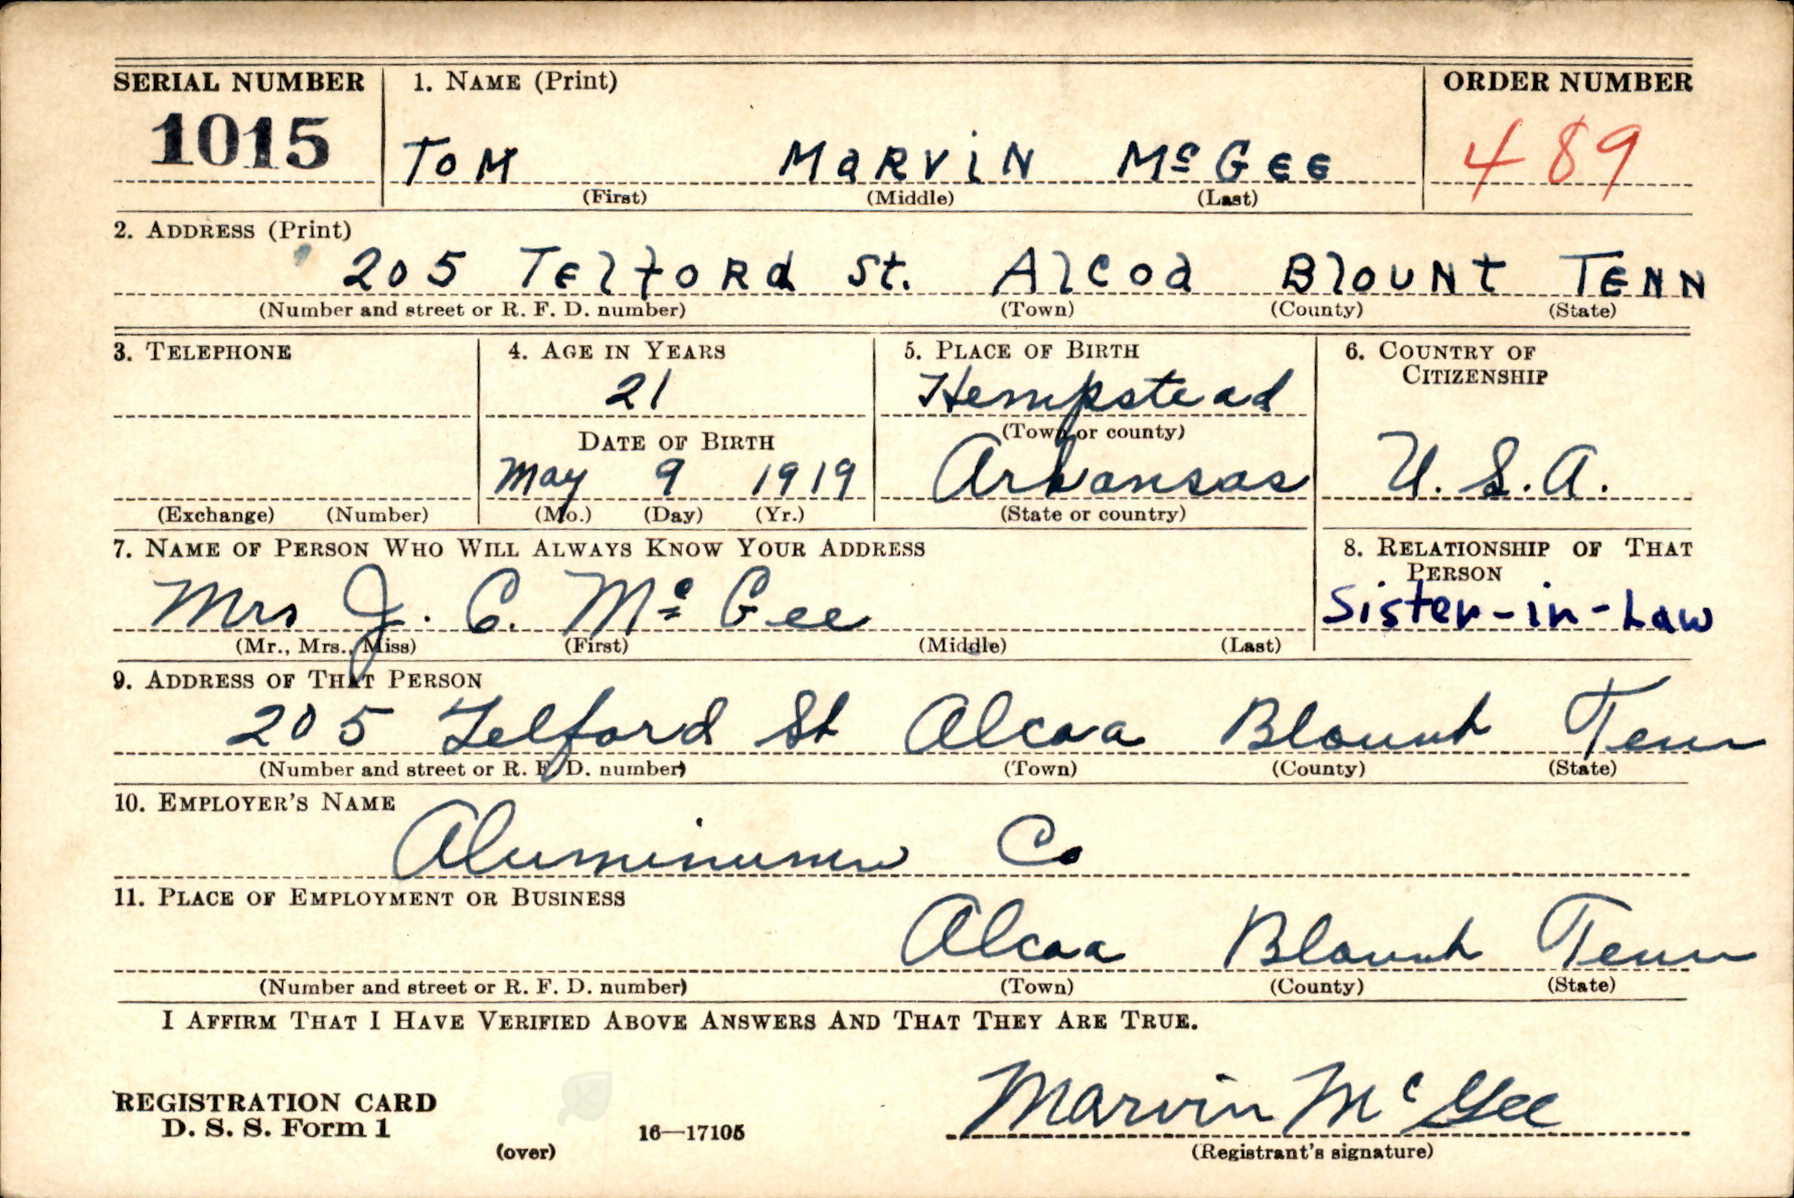 SERIAL NUMBER 1. NAME (Print) ORDER NUMBER
1015 TOM MARVIN McGEE 489
(First) (Middle) (Last)
2. ADDRESS (Print)
205 Telford St. Alcoa Blount TENN
(Number and street or R. F. D. number) (Town) (County) (State)
3. TELEPHONE 4. AGE IN YEARS 5. PLACE OF BIRTH 6. COUNTRY OF CITIZENSHIP
21 Hempstead
DATE OF BIRTH (Town or county)
May 9 1919 Arkansas U.S.A.
(Exchange) (Number) (Mo.) (Day) (Yr.) (State or country)
7. NAME OF PERSON WHO WILL ALWAYS KNOW YOUR ADDRESS 8. RELATIONSHIP OF THAT PERSON
Mrs J. C. McGee Sister-in-Law
(Mr., Mrs., Miss) (First) (Middle) (Last)
9. ADDRESS OF THAT PERSON
205 Telford St Alcoa Blount Tenn
(Number and street or R. F. D. number) (Town) (County) (State)
10. EMPLOYER'S NAME
Aluminum Co
11. PLACE OF EMPLOYMENT OR BUSINESS
Alcoa Blount Tenn
(Number and street or R. F. D. number) (Town) (County) (State)
I AFFIRM THAT I HAVE VERIFIED ABOVE ANSWERS AND THAT THEY ARE TRUE.
REGISTRATION CARD
D. S. S. Form 1
(over) 16—17105
Marvin McGee
(Registrant's signature)